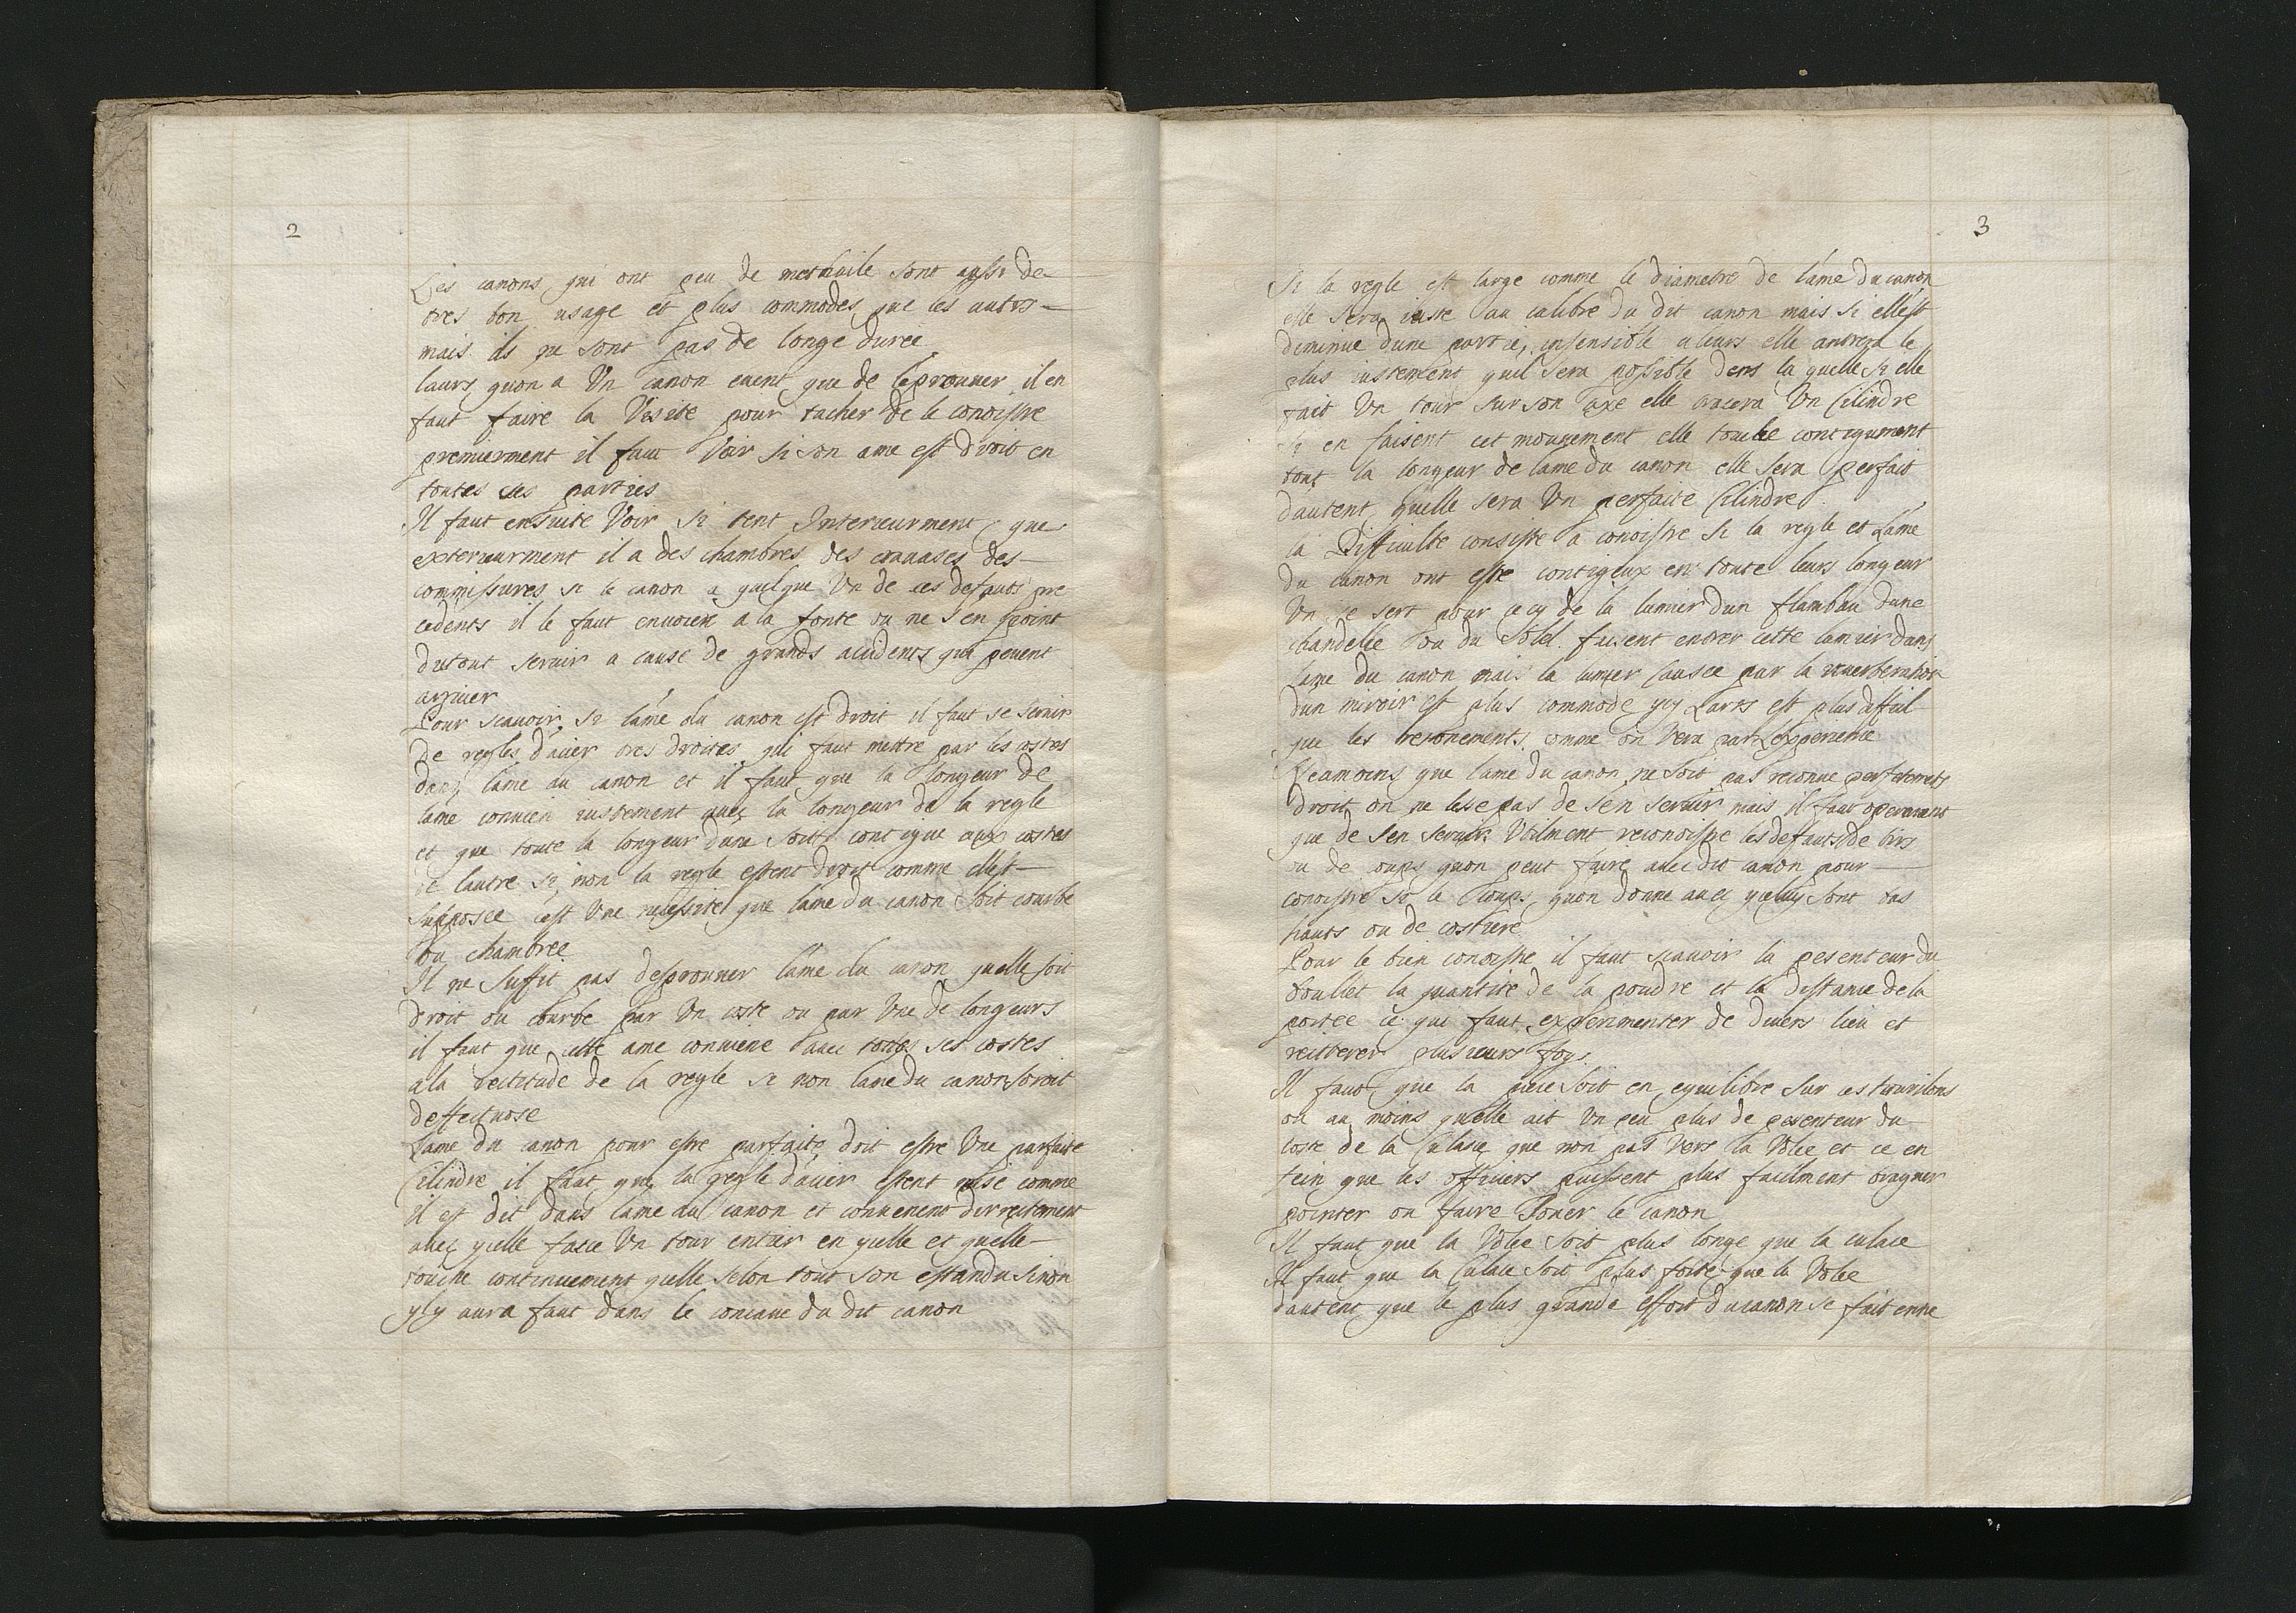 2
Les canons qui ont peu de methaile sont aussi de
tres bon usage et plus commodes que les autrs
mais ils ne sont pas de longe durée
laurs quon a Un canon auent que de léprouuer il en
faut faire la Visite pour tacher de le conoistre
premierment il faut Voir si son ame est droit en
toutes ses parties
Il faut ensuite Voir si tent Interieurment que
exterieurment il a des chambres des crauases des
commissures si le canon a quelque Un de ces defauts pre
cedents il le faut enuoiere a la fonte ou ne s'en point
dutout seruir a cause de grands acidents qui peuent
arriuer
Pour scauoir si l'ame du canon est droit il faut se seruir
de regles d'acier tres droites qui faut mettre par les costes
dans lame du canon et il faut que la longeur de
lame conuien iustement auec la longeur de la regle
et que toute la longeur dune soit contigue aux costes
de lautre si non la regle estent droit comme ellest
supposee cest Une necessite que lame du canon soit courbe
ou chambree
Il ne suffit pas desprouuer l'ame du canon quelle soit
droit ou courbe par Un coste ou par Une de longeurs
il faut que cette ame conuiene auec toutes ses costes
a la rectitude de la regle si non lame du canon seroit
deffectuose
Lame du canon pour estre parfaite doit estre Une parfaite
Cilindre il faut que la regle d'acier estent mise comme
il est dit dans lame du canon et conuenent dirrectement
auec yielle facce Un tour entier en yielle et quelle
touche continuement yielle selon tout son estandu sinon
y y aura faut dans le concaue du dit canon
3
Si la regle est large comme le diametre de l'ame du canon
elle sera iuste au calibre du dit canon mais si ellest
diminue dune partie insensible aleurs elle antrera le
plus iustement quil sera possible dens la quelle si elle
fait Un tour sur son axe elle tracera Un Cilindre
si en faisent cet mouuement elle touche contigument
tout la longeur de lame du canon elle sera perfait
dautent quelle sera Un perfaite Cilindre
la Difficulte consiste a conoistre si la regle et Lame
du canon ont este contigeux en toute leurs longeur
On se sert pour cecy de la lumier dun flambau dune
chandelle ou du Solel faisent entrer cette lumier dans
lame du canon mais la lumier causee par la reuerberation
d'un miroir est plus commode ycy Larts est plus dificil
que les resonements comme on Vera par Lexperience
Neamoins que lame du canon ne soit pas reconue perfetements
droit on ne lese pas de sen seruir mais il faut
que de sen seruir Utilment reconoistre les defauts de tirs
ou de coups quon peut faire auec dit canon pour
conoistre si le coups quon donne auec ycelluy sont bas
hauts ou de costiere
Pour le bien conoistre il faut scauoir la pesenteur du
boullet la quantite de la poudre et la distance de la
portee ce qui faut experimenter de diuers lieu et
reitterer plusieurs foys
Il faut que la piece soit en equilibre sur ses tourilons
ou au moins qu'elle ait Un peu plus de pesenteur du
coste de la Culasse que non pas Vers la Volee et ce en
fein que les officiers puissent plus facilment braquer
pointer ou faire Jouer le canon
Il faut que la Volee soit plus longe que la culace
Il faut que la Culace soit plus forte que la Volee
dautent que le plus grande effort du canon se fait enne